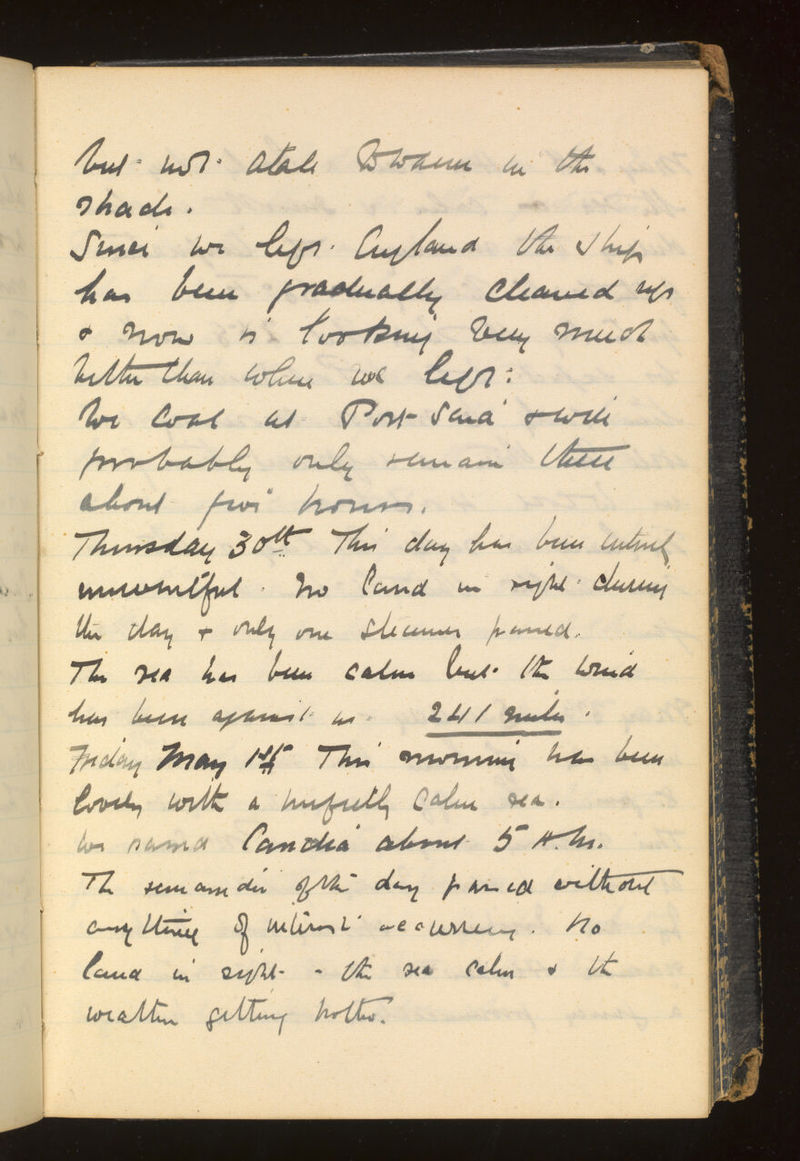 but not atall to warm in the
shade.
Since we left England the ship
has been gradually cleaned up
& now is looking very much
better than when we left.
We coal at Port Said & will
probably only remain there
about five hours.
Thursday 30th This day has been entirely
uneventful. No land in sight during
the day & only one steamer passed.
The sea has been calm but the wind
has been against us. 241 miles.
Friday May 1st This morning has been
lovely with a perfectly calm sea.
We Candia about 5 A.M.
The remainder of the day passed without
anything of interest occurring. No
land in sight - the sea calm & the
weather getting hotter.